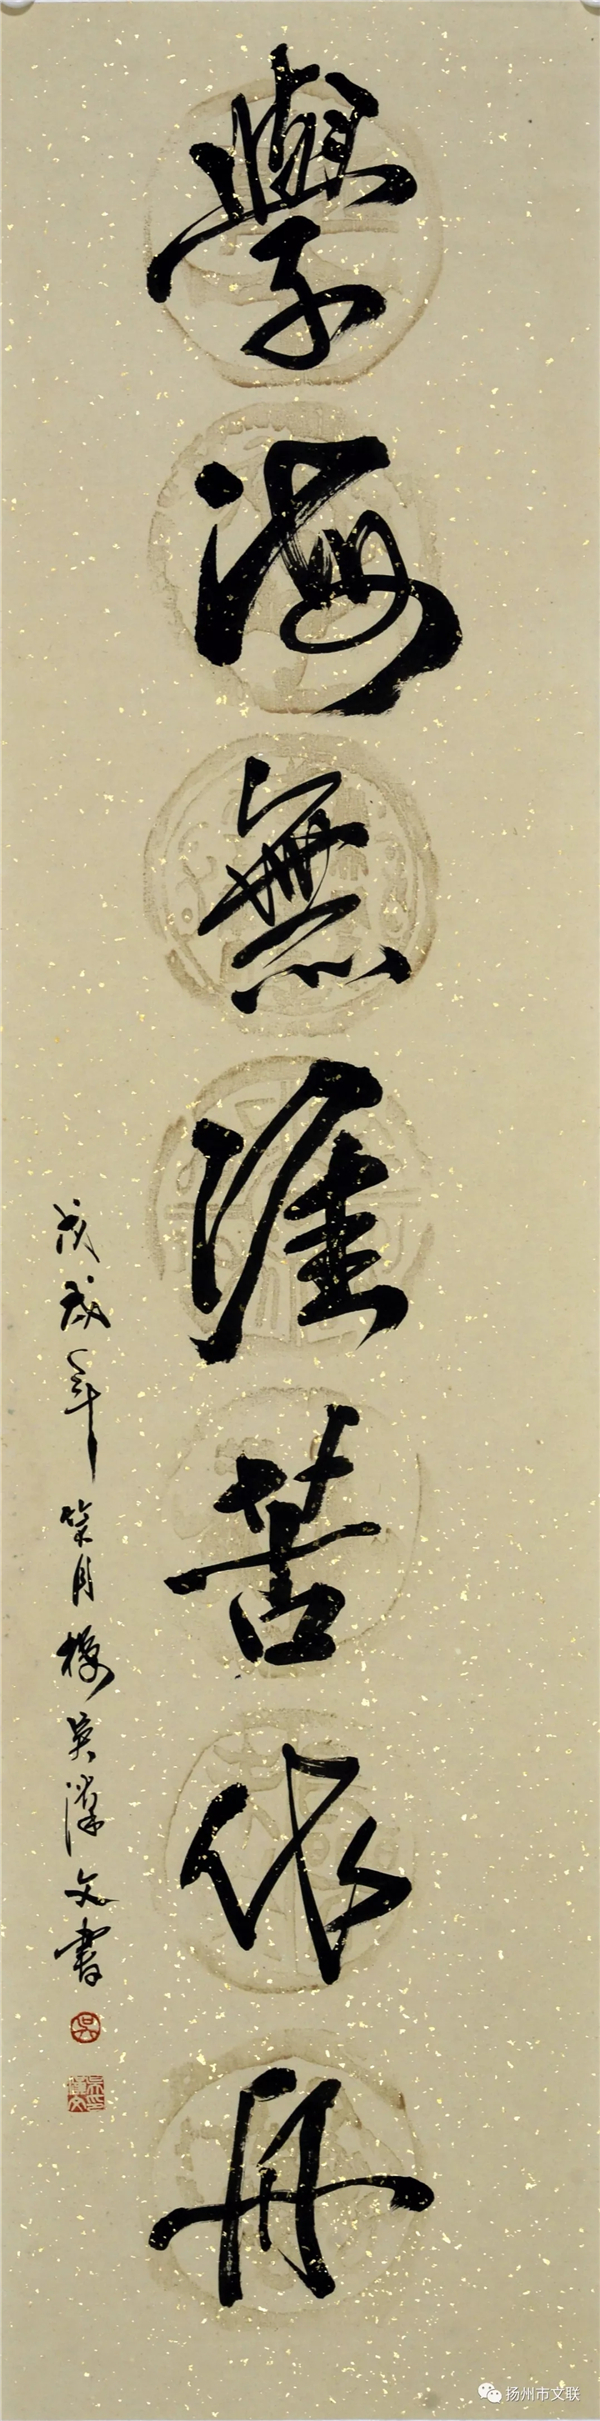 學海無涯苦作舟
戊戌年月樓吳漢文書
吳
扬州市文联